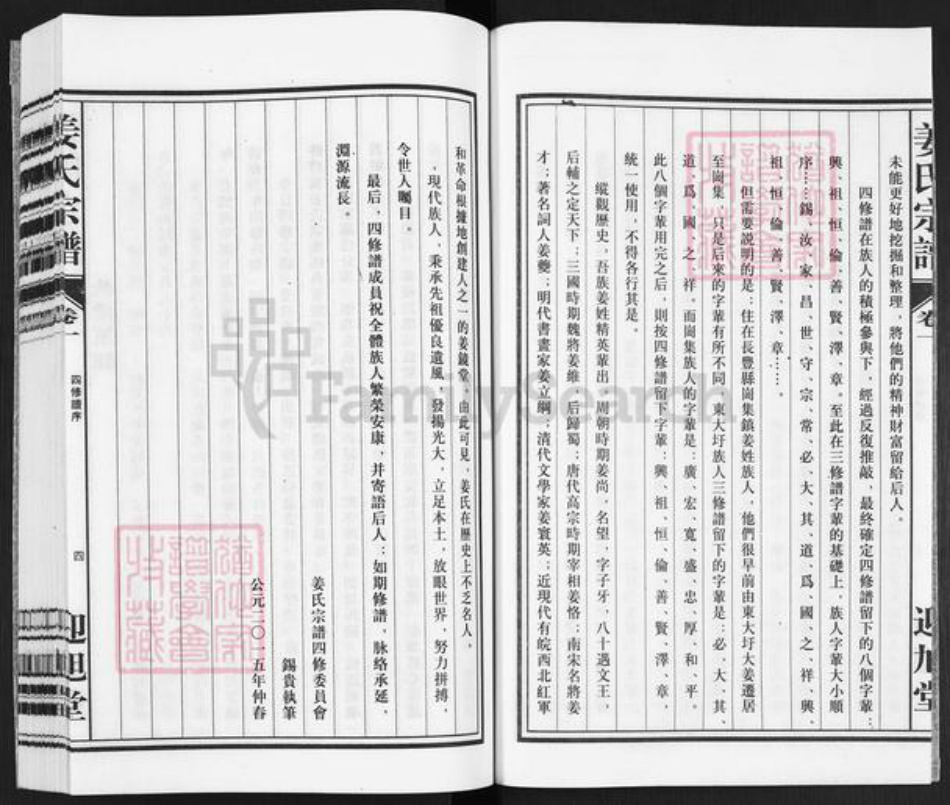 未能更好地挖掘和整理，將他們的精神財富留給后人。
四修譜在族人的積極參與下，經過反復推敲，最終確定四修譜留下的八個字輩：
興、祖、恒、倫、善、賢、澤、章。至此在三修譜字輩的基礎上，族人字輩大小順
序……錫、汝、家、昌、世、守、宗、常、必、大、其、道、爲、國、之、祥、興、
祖、恒、倫、善、賢、澤、章……
但需要説明的是：住在長豐縣崗集鎮姜姓族人，他們很早前由東大圩大姜遷居
至崗集，只是后來的字輩有所不同，東大圩族人三修譜留下的字輩是：必、大、其、
道、爲、國、之、祥。而崗集族人的字輩是：廣、宏、寬、盛、忠、厚、和、平。
此八個字輩用完之后，則按四修譜留下字輩：興、祖、恒、倫、善、賢、澤、章，
統一使用，不得各行其是。
縱觀歷史，吾族姜姓精英輩出。周朝時期姜尚，名望，字子牙，八十遇文王，
后輔之定天下；三國時期魏將姜維，后歸蜀；唐代高宗時期宰相姜恪；南宋名將姜
才；著名詞人姜夔；明代書畫家姜立綱；清代文學家姜宸英；近現代有皖西北紅軍
姜氏宗譜 卷一
迎旭堂
和革命根據地創建人之一的姜鏡堂，由此可見，姜氏在歷史上不乏名人，
現代族人，秉承先祖優良遺風，發揚光大，立足本土，放眼世界，努力拼搏，
令世人矚目。
最后，四修譜成員祝全體族人繁榮安康，并寄語后人：如期修譜，脉絡承延，
淵源流長。
姜氏宗譜四修委員會
錫貴執筆
公元二〇一五年仲春
姜氏宗譜 卷一
四修譜序
四
迎旭堂
FamilySearch